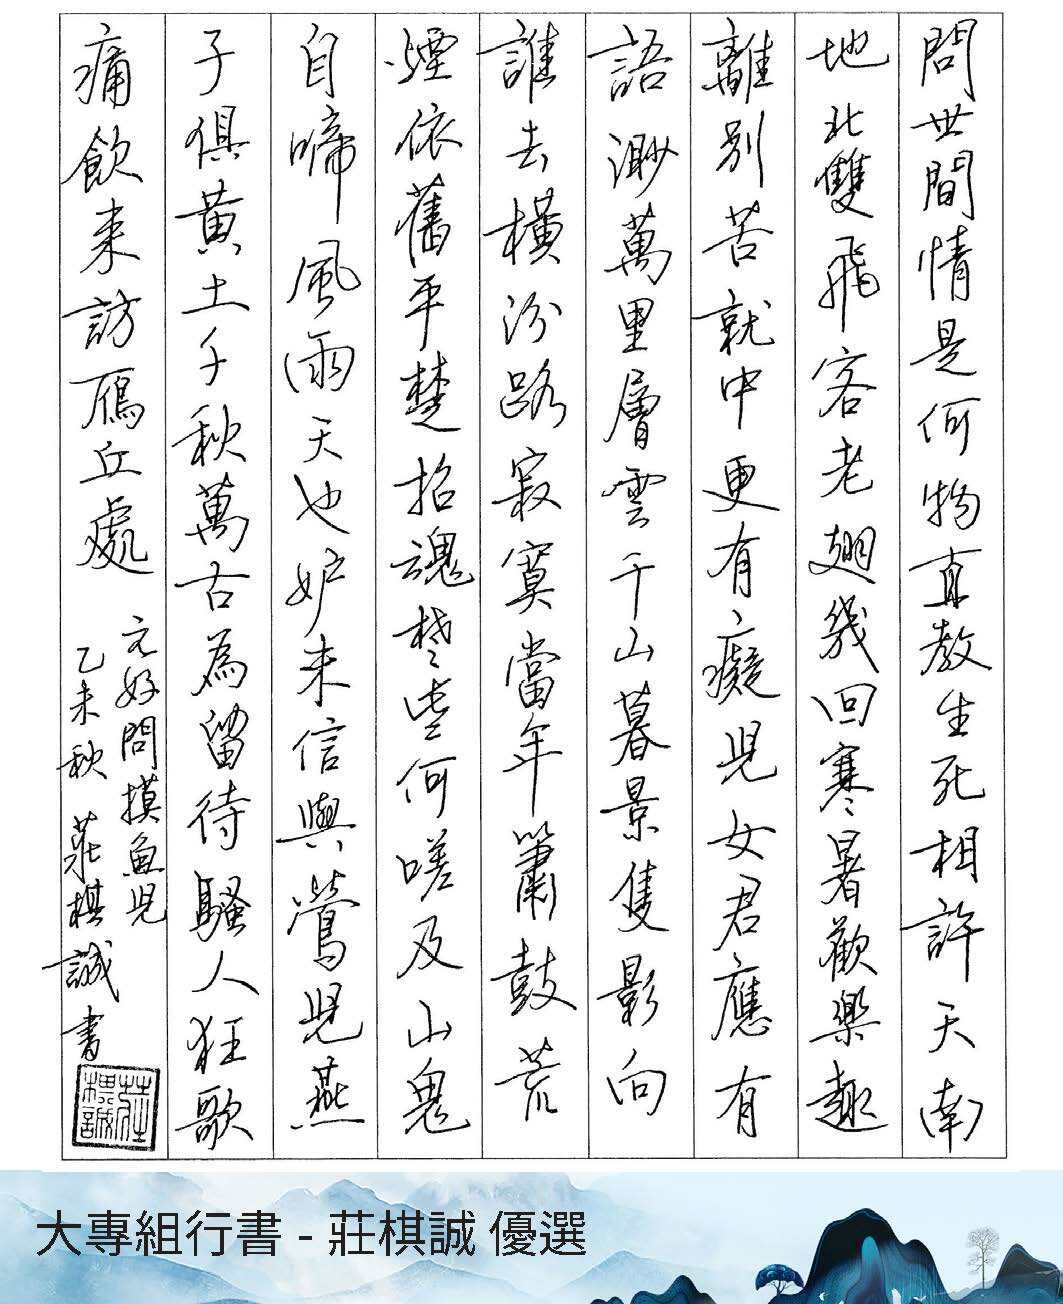 問世間情是何物直教生死相許天南
地北雙飛客老翅幾回寒暑歡樂趣
離別苦就中更有癡兒女君應有
語渺萬里層雲千山暮景隻影向
誰去橫汾路寂寞當年簫鼓荒
煙依舊平楚招魂楚些何嗟及山鬼
自啼風雨天也妒未信與鶯兒燕
子俱黃土千秋萬古為留待騷人狂歌
痛飲來訪雁丘處
元好問摸魚兒
乙未秋 莊棋誠書
莊棋誠
大專組行書 - 莊棋誠 優選